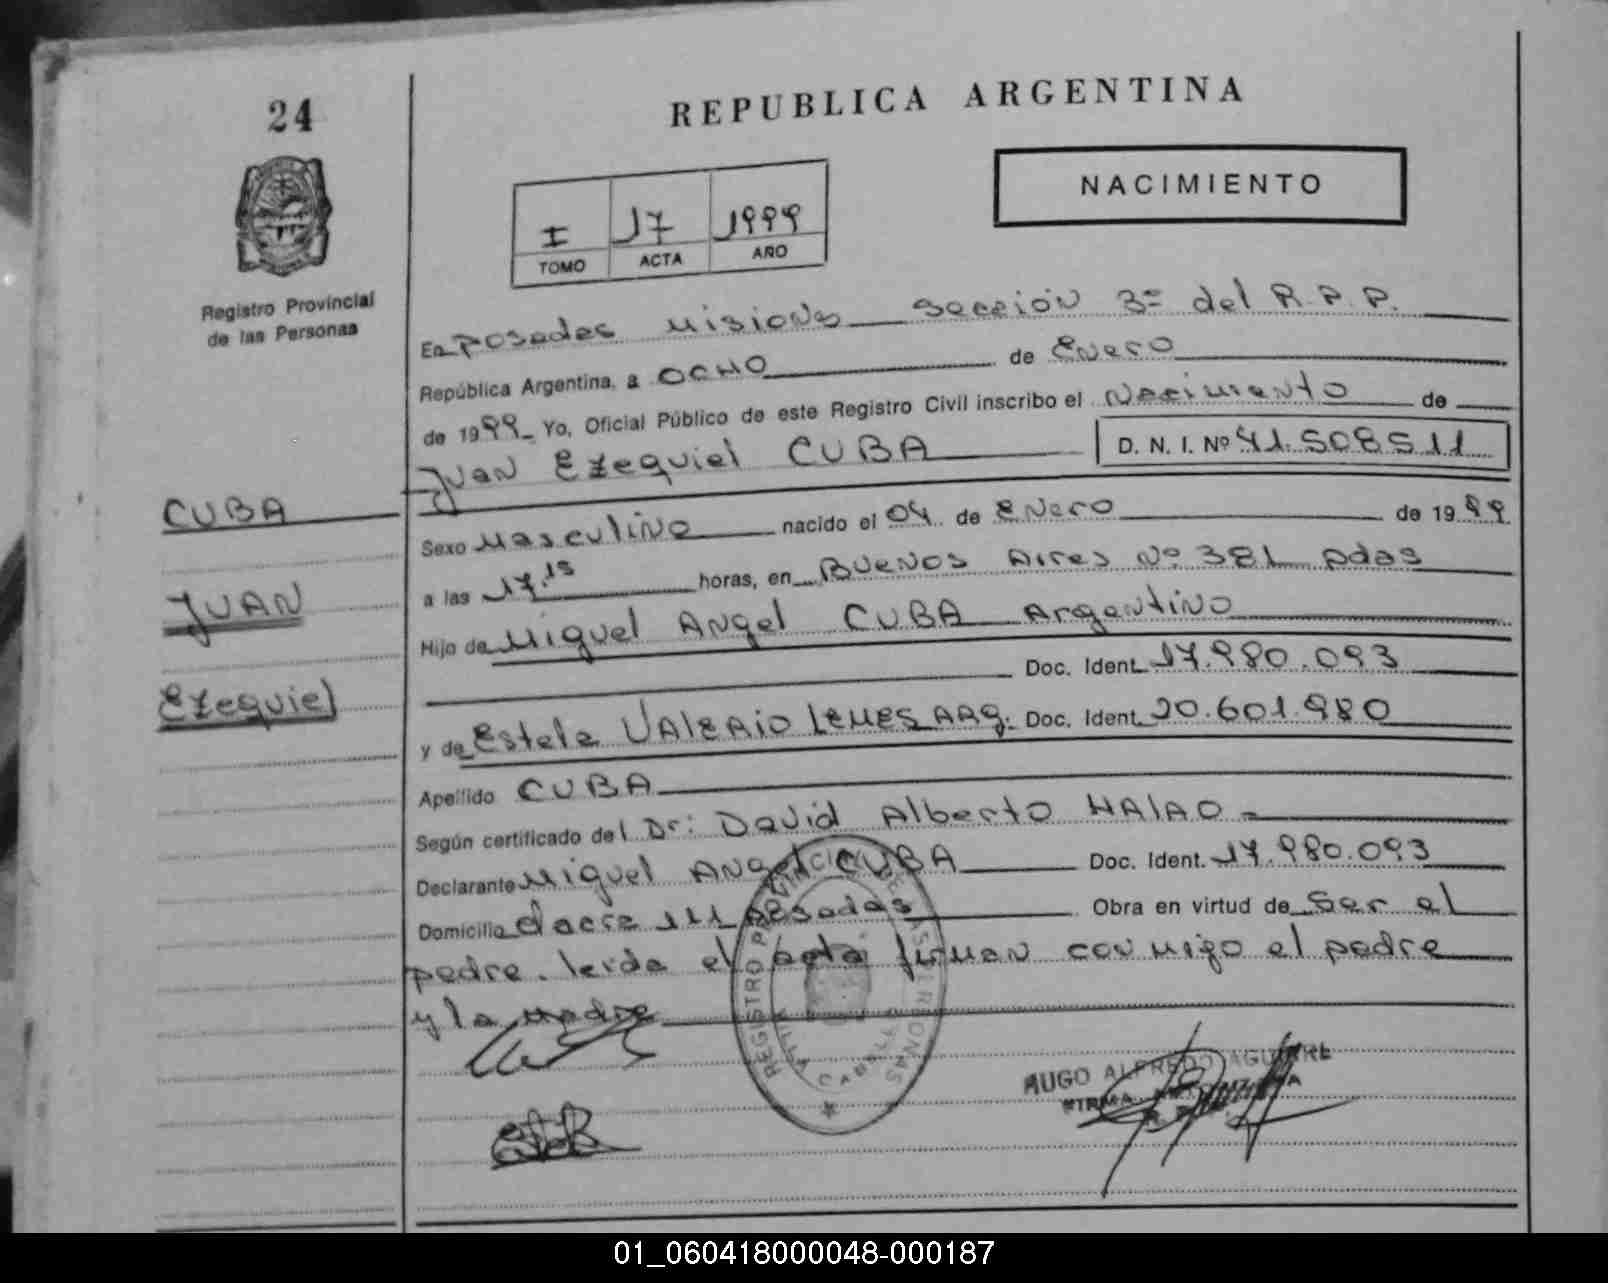 24
REPUBLICA ARGENTINA
NACIMIENTO
I 17 1999
TOMO ACTA AÑO
Registro Provincial
de las Personas
En Posadas Misiones Sección 3ª del R.P.P.
República Argentina, a OCHO de Enero
de 1999 Yo, Oficial Público de este Registro Civil inscribo el Nacimiento de
Juan Ezequiel CUBA D. N. I. Nº 41.508511
CUBA
Sexo Masculino nacido el 04 de Enero de 1999
a las 17.15 horas, en Buenos Aires Nº 381 pdas
JUAN
Hijo de Miguel Angel CUBA Argentino
Doc. Ident. 17.980.093
Ezequiel
y de Estela VALERIO LEMES ARG. Doc. Ident. 20.601.980
Apellido CUBA
Según certificado del Dr: David Alberto HALAO
Declarante Miguel Angel CUBA Doc. Ident. 17.980.093
Domicilio chacra 111 posadas Obra en virtud de Ser el
padre. leida el acta firman conmigo el padre
y la madre
REGISTRO PROVINCIAL DE LAS PERSONAS
VILLA CABELLO
HUGO ALFREDO AGUIRRE
FIRMA
01_060418000048-000187